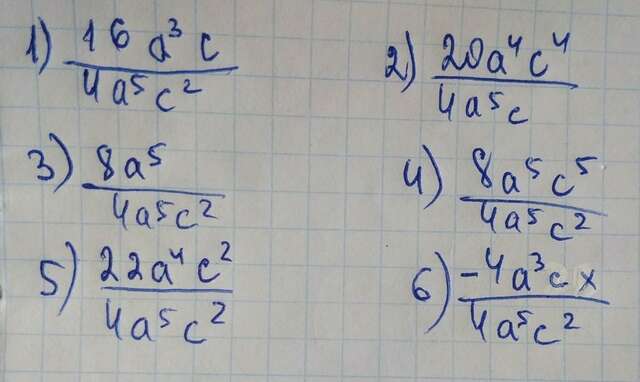 1) 16a³c / 4a⁵c²
2) 20a⁴c⁴ / 4a⁵c
3) 8a⁵ / 4a⁵c²
4) 8a⁵c⁵ / 4a⁵c²
5) 22a⁴c² / 4a⁵c²
6) -4a³cx / 4a⁵c²